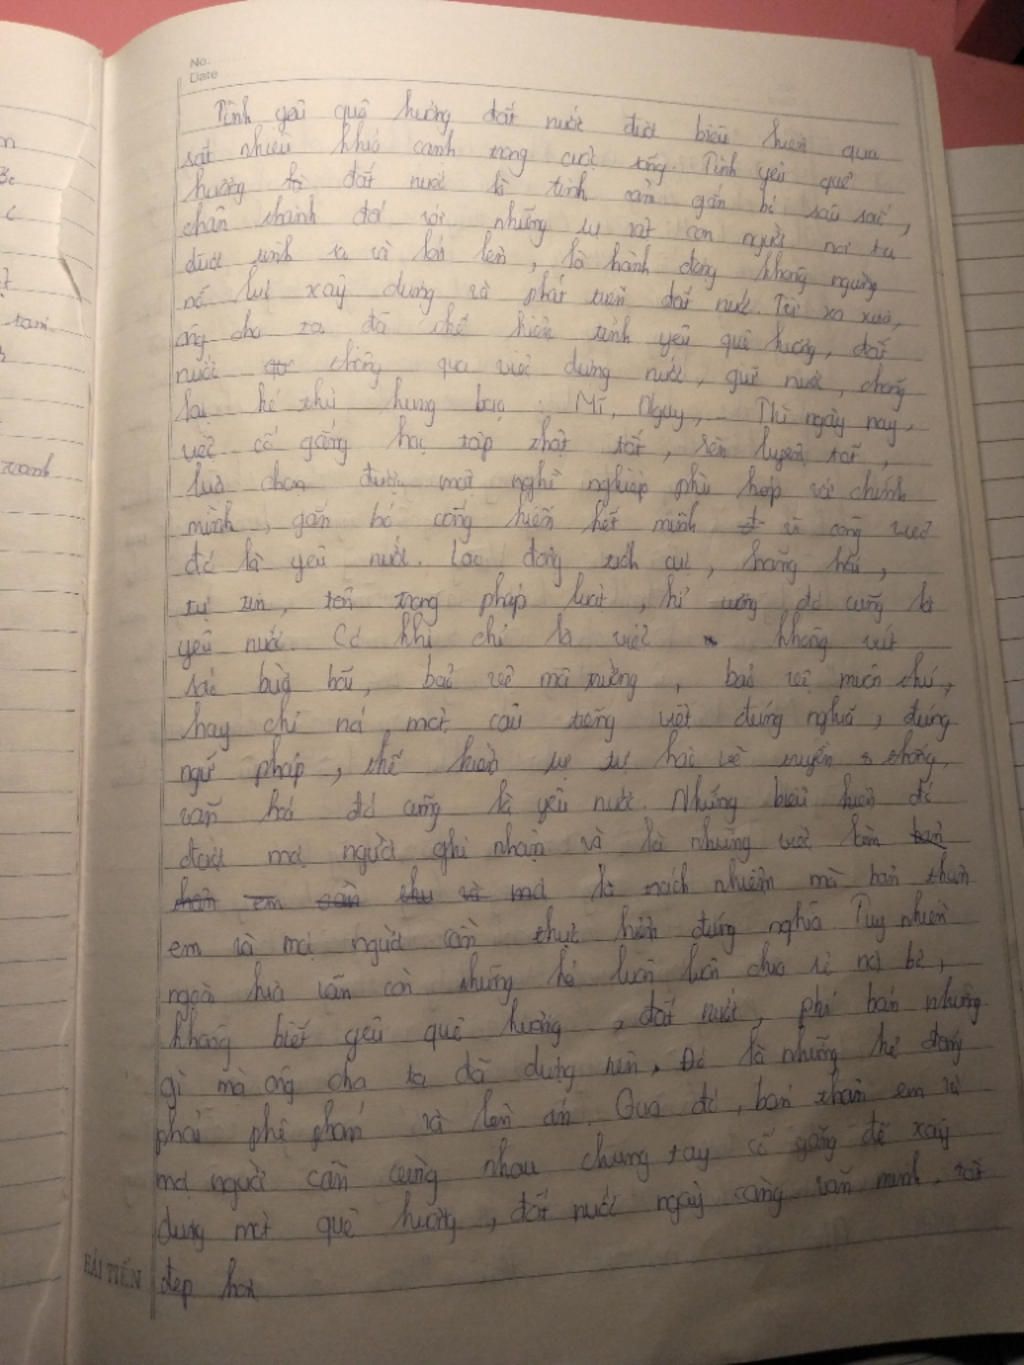 No.
Date
Tình yêu quê hương đất nước được biểu hiện qua
rất nhiều khía cạnh trong cuộc sống. Tình yêu quê
hương đất nước là tình cảm gắn bó sâu sắc,
chân thành đối với những sự vật con người nơi ta
được sinh ra và lớn lên, là hành động không ngừng
nỗ lực xây dựng và phát triển đất nước. Từ xa xưa,
ông cha ta đã thể hiện tình yêu quê hương, đất
nước thông qua việc dựng nước, giữ nước, chống
lại kẻ thù hung bạo: Mĩ, Nguỵ,... Thì ngày nay,
việc cố gắng học tập thật tốt, rèn luyện tốt,
lựa chọn được một nghề nghiệp phù hợp với chính
mình, gắn bó cống hiến hết mình vì công việc
đó là yêu nước. Lao động tích cực, hăng hái,
tự tin, tôn trọng pháp luật, kỉ cương đó cũng là
yêu nước. Có khi chỉ là việc không vứt
rác bừa bãi, bảo vệ môi trường, bảo vệ muôn thú,
hay chỉ nói một câu tiếng việt đúng nghĩa, đúng
ngữ pháp, thể hiện sự tự hào về truyền thống
văn hoá đó cũng là yêu nước. Những biểu hiện đó
được mọi người ghi nhận và là những việc làm
là trách nhiệm mà bản thân
em và mọi người cần thực hiện đúng nghĩa. Tuy nhiên
ngoài kia vẫn còn những kẻ luôn luôn
không biết yêu quê hương, đất nước, những
gì mà ông cha ta đã dựng nên. Đó là những kẻ đáng
phải phê phán và lên án. Qua đó, bản thân em và
mọi người cần cùng nhau chung tay cố gắng để xây
dựng một quê hương, đất nước ngày càng văn minh, tốt
đẹp hơn
HẢI TIẾN